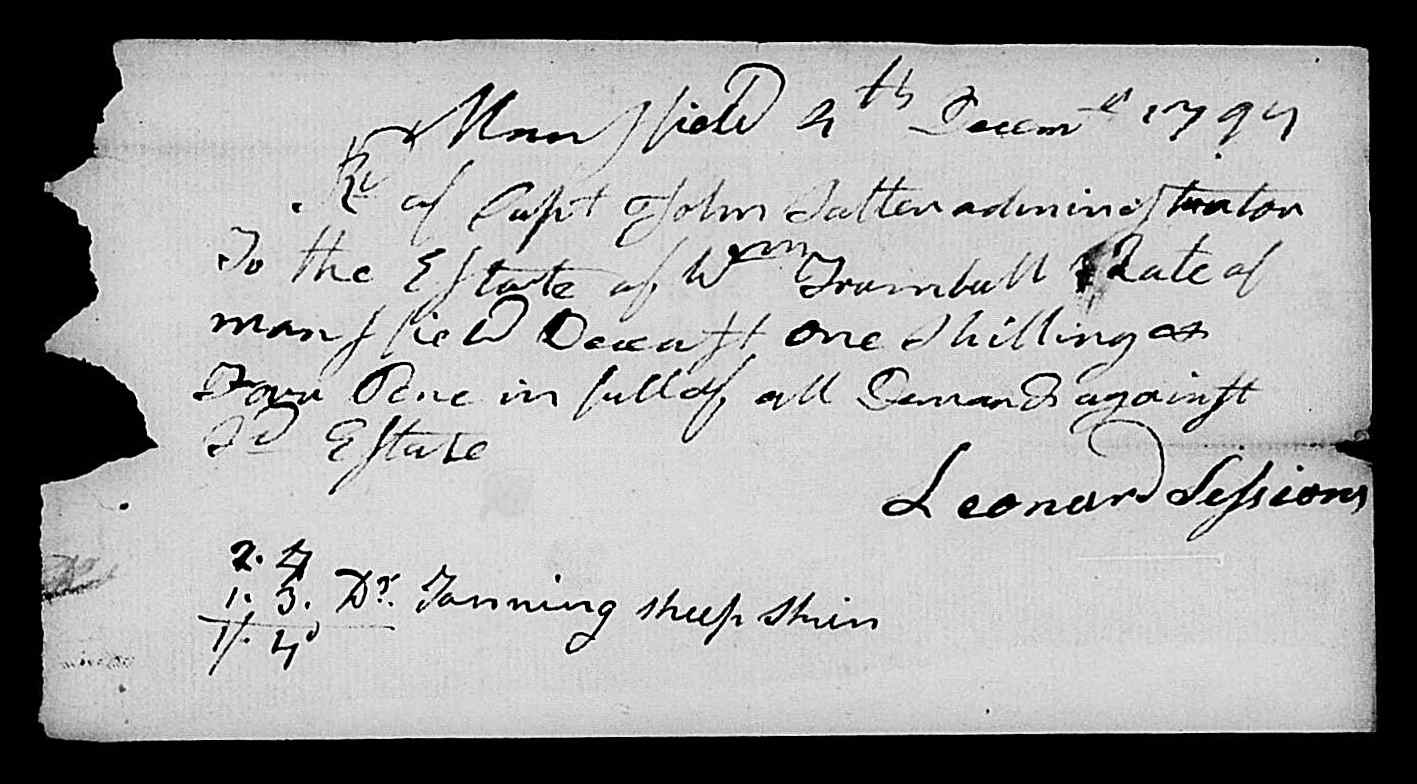 Mansfield 4th Decemr 1794
Rc of Capt John Salter administrator
To the Estate of Wm Trumbull Late of
mansfield Deceast one Shilling &
Four Pene in full of all Demands against
Sd Estate
Leonard Sessions
2. 4
1. 3. Dr. Tanning sheep skin
1/. 4d